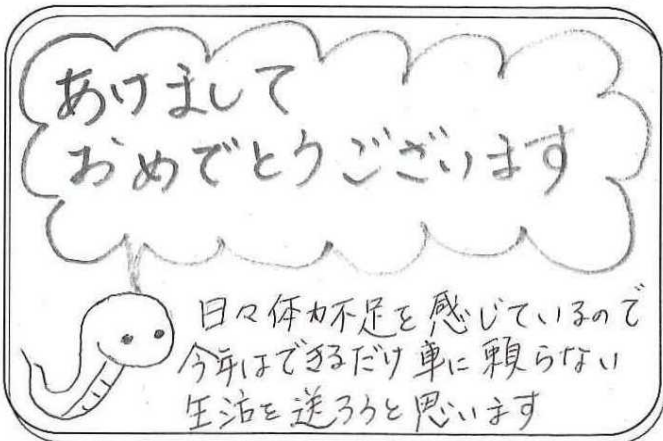 あけまして
おめでとうございます
日々体力不足を感じているので
今年はできるだけ車に頼らない
生活を送ろうと思います